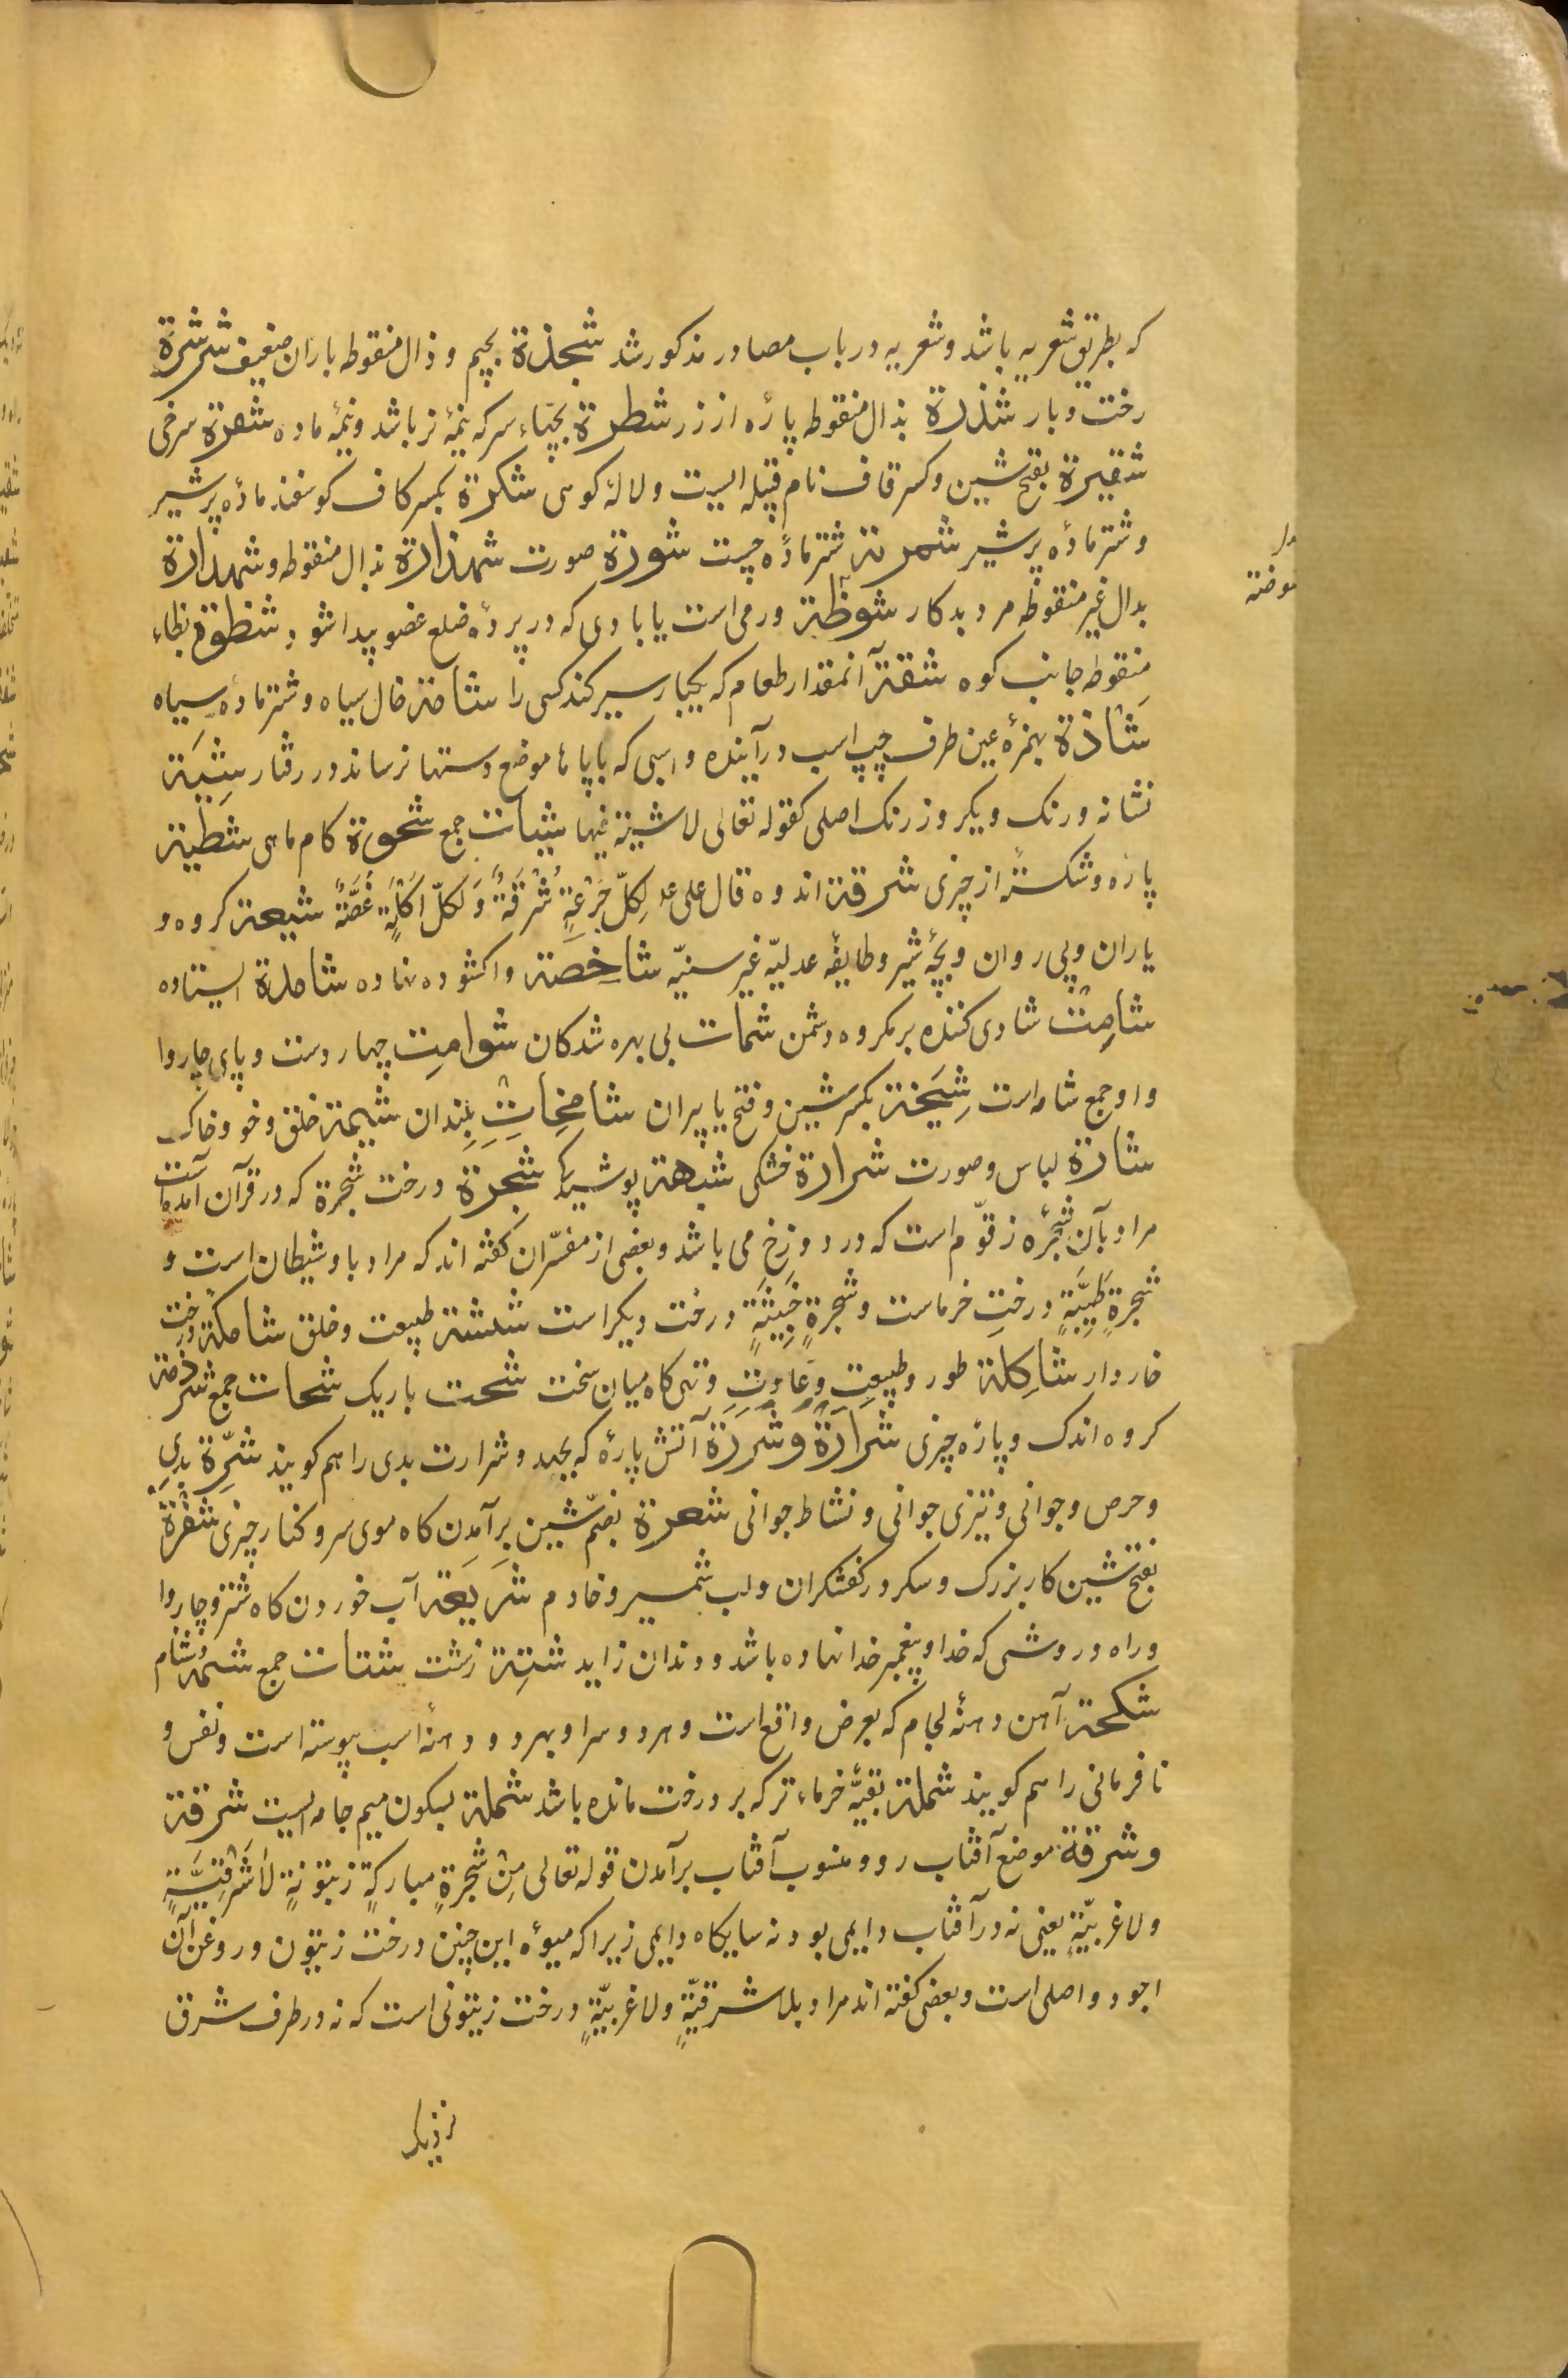 که بطریق شعریه باشد و شعریه در باب مصادر مذکور شد شجذة بجیم و ذال منقوطه باران ضعیف شرشرة
رخت و بار شذرة بذال منقوطه پارٔه از زر شطرة بچّهاء سرکه نیمهٔ نر باشد و نیمهٔ ماده شقرة سرخی
شقیرة بفتح شین و کسر قاف نام قبیله ایست و لالهٔ کوهی شکرة بکسر کاف کوسفند مادٔه پر شیر
و شتر مادٔه پر شیر شمرية شتر مادٔه چست شورة صورت شهذارة بذال منقوطه و شهدارة
بدال غیر منقوطه مرد بدکار شوظة ورمی است یا بادی که در پردٔه ضلع عضو پیدا شود شنظوة بظاء
منقوطه جانب کوه شقة آنمقدار طعام که یکبار سیر کند کسی را شامة خال سیاه و شتر مادٔه سیاه
شاذة بهمزهٔ عین طرف چپ اسب درآینده و اسبی که پاپاها موضع دستها نرساند در رفتار شِیَة
نشانه و رنک دیکر و زرنک اصلی کقوله تعالی لاشیة فیها شیات جمع شحوة کام ماهی شظیة
پارٔه و شکسته از چیزی شرقة اندوه قال علی عم لِکلّ جَرْعَةٍ شَرْقَةٌ وَ لکلّ اَکْلَةٍ غُصَّةٌ شیعة کروه و
یاران و پی روان و بچّهٔ شیر و طایفهٔ عدلیّه غیر سنیّه شاخِصة واکشوده نهاده شاملة ایستاده
شامِتْ شادی کننده بر مکروه دشمن شمات بی بهره شدکان شوامِت چهار دست و پای چاروا
و او جمع شامه است شِیَخة بکسر شین و فتح یا پیران شامِخَات بلندان شیمة خلق و خو و خاک
شارة لباس و صورت شرارة خشکی شبهة پوشیدکی شجرة درخت شجرة که در قرآن آمده است
مراد بآن شجرٔه زقّوم است که در دوزخ می باشد و بعضی از مفسّران کفته اند که مراد باو شیطان است و
شجرةٍ طَیِّبَةٍ درختِ خرماست و شجرةٍ خَبِیثَةٍ درخت دیکر است شنشنة طبیعت و خلق شاکة درخت
خاردار شاکِلة طور و طبیعت و عادت و تهی کاه میان سخت شحت باریک شحات جمع شرذمة
کروه اندک و پارٔه چیزی شَرَارَةٌ وَ شَرَرَة آتش پارٔه که بجهد و شرارت بدی را هم کویند شِرّة بدی
و حرص و جوانی و تیزی جوانی و نشاط جوانی شعرة بضمّ شین برآمدن کاه موی سر و کنار چیزی شَفْرَة
بفتح شین کار بزرک و سکرد کفشکران و لب شمشیر و خادم شَریعَة آب خوردن کاه شتر و چاروا
و راه و روشی که خدا و پیغمبر خدا نهاده باشد و دندان زاید شتیة زشت شتات جمع شتمة دشنام
شکمة آهن دهنهٔ لجام که بعرض واقع است و هر دو سر او بهر دو دهنهٔ اسب پیوسته است و نفس و
نافرمانی را هم کویند شملة بقیّهٔ خرماء تر که بر درخت مانده باشد شملة بسکون میم جامه ایست شرقة
وشرقة موضع آفتاب رو و منسوب آفتاب برآمدن قوله تعالی مِنْ شجَرةٍ مبارکةٍ زیتونةٍ لاشَرْقِیَّةٍ
ولاغربیّةٍ یعنی نه در آفتاب دایمی بود نه سایکاه دایمی زیرا که میؤه این چنین درخت زیتون و روغن آن
اجود و اصلی است و بعضی کفته اند مراد بلاشرقیّةٍ ولاغربیّةٍ درخت زیتونی است که نه در طرف شرق